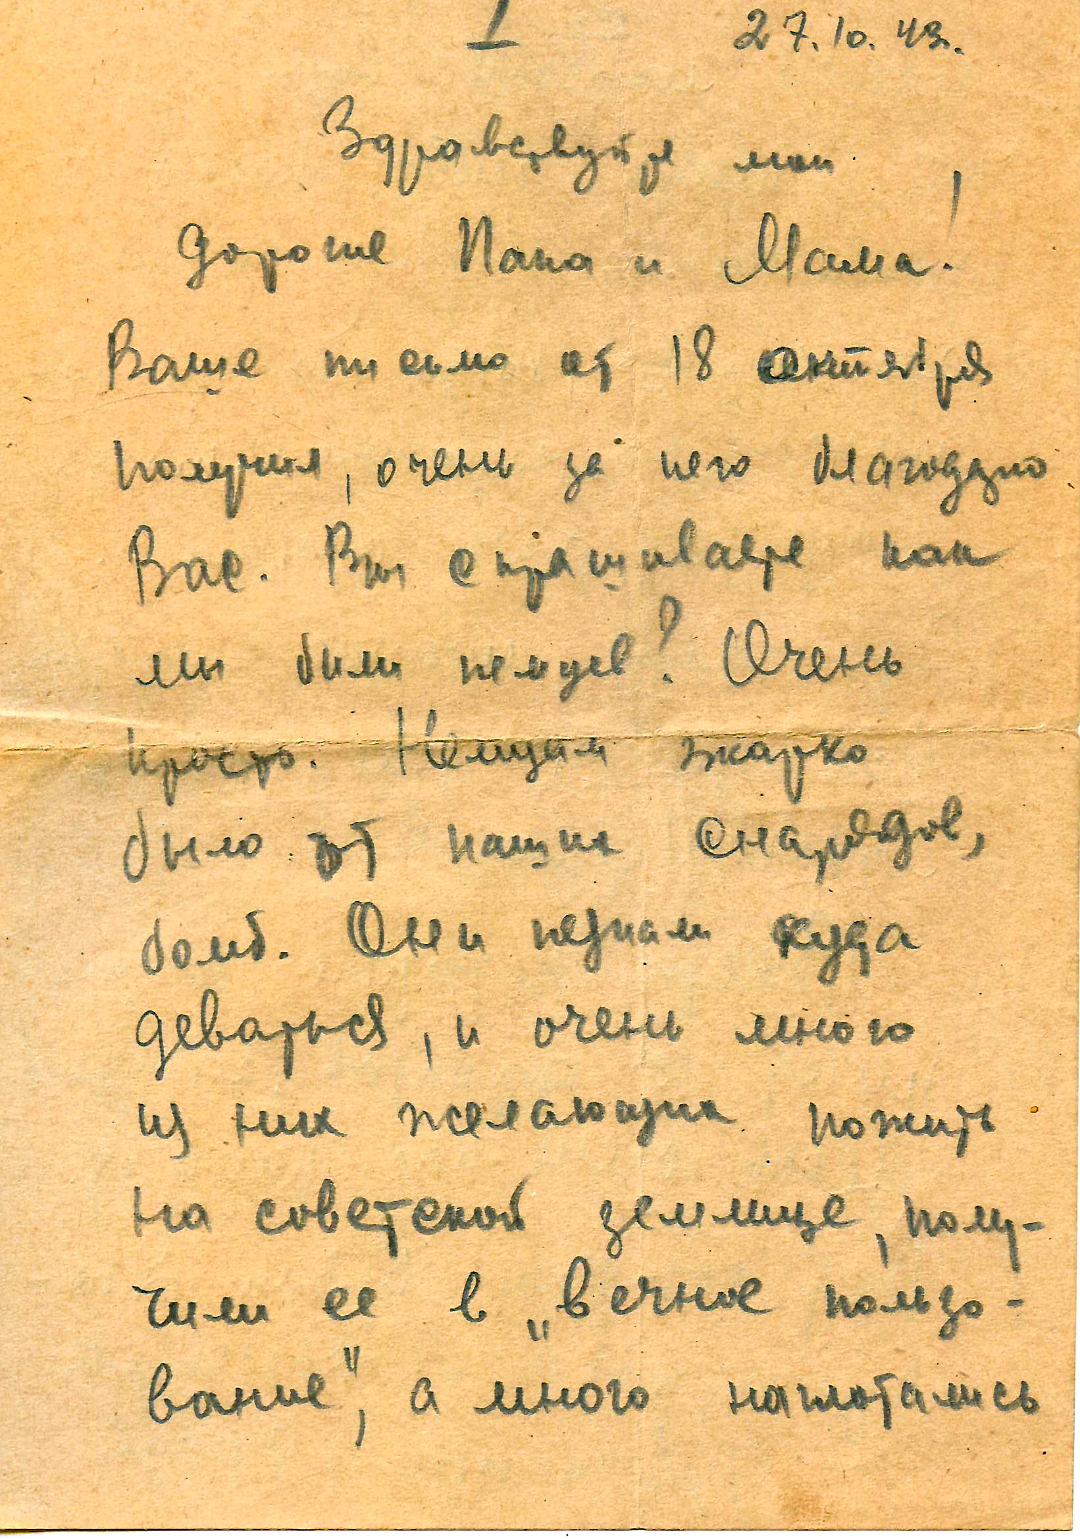 I 27.10.43.
Здравствуйте мои
дорогие Папа и Мама!
Ваше письмо от 18 октября
получил, очень за него благодарю
Вас. Вы спрашиваете как
мы били немцев? Очень
просто. Немцам жарко
было от наших снарядов,
бомб. Они незнали куда
деваться, и очень много
из них желающих пожить
на советской землице, полу-
чили ее в „вечное пользо-
вание", а много наглотались